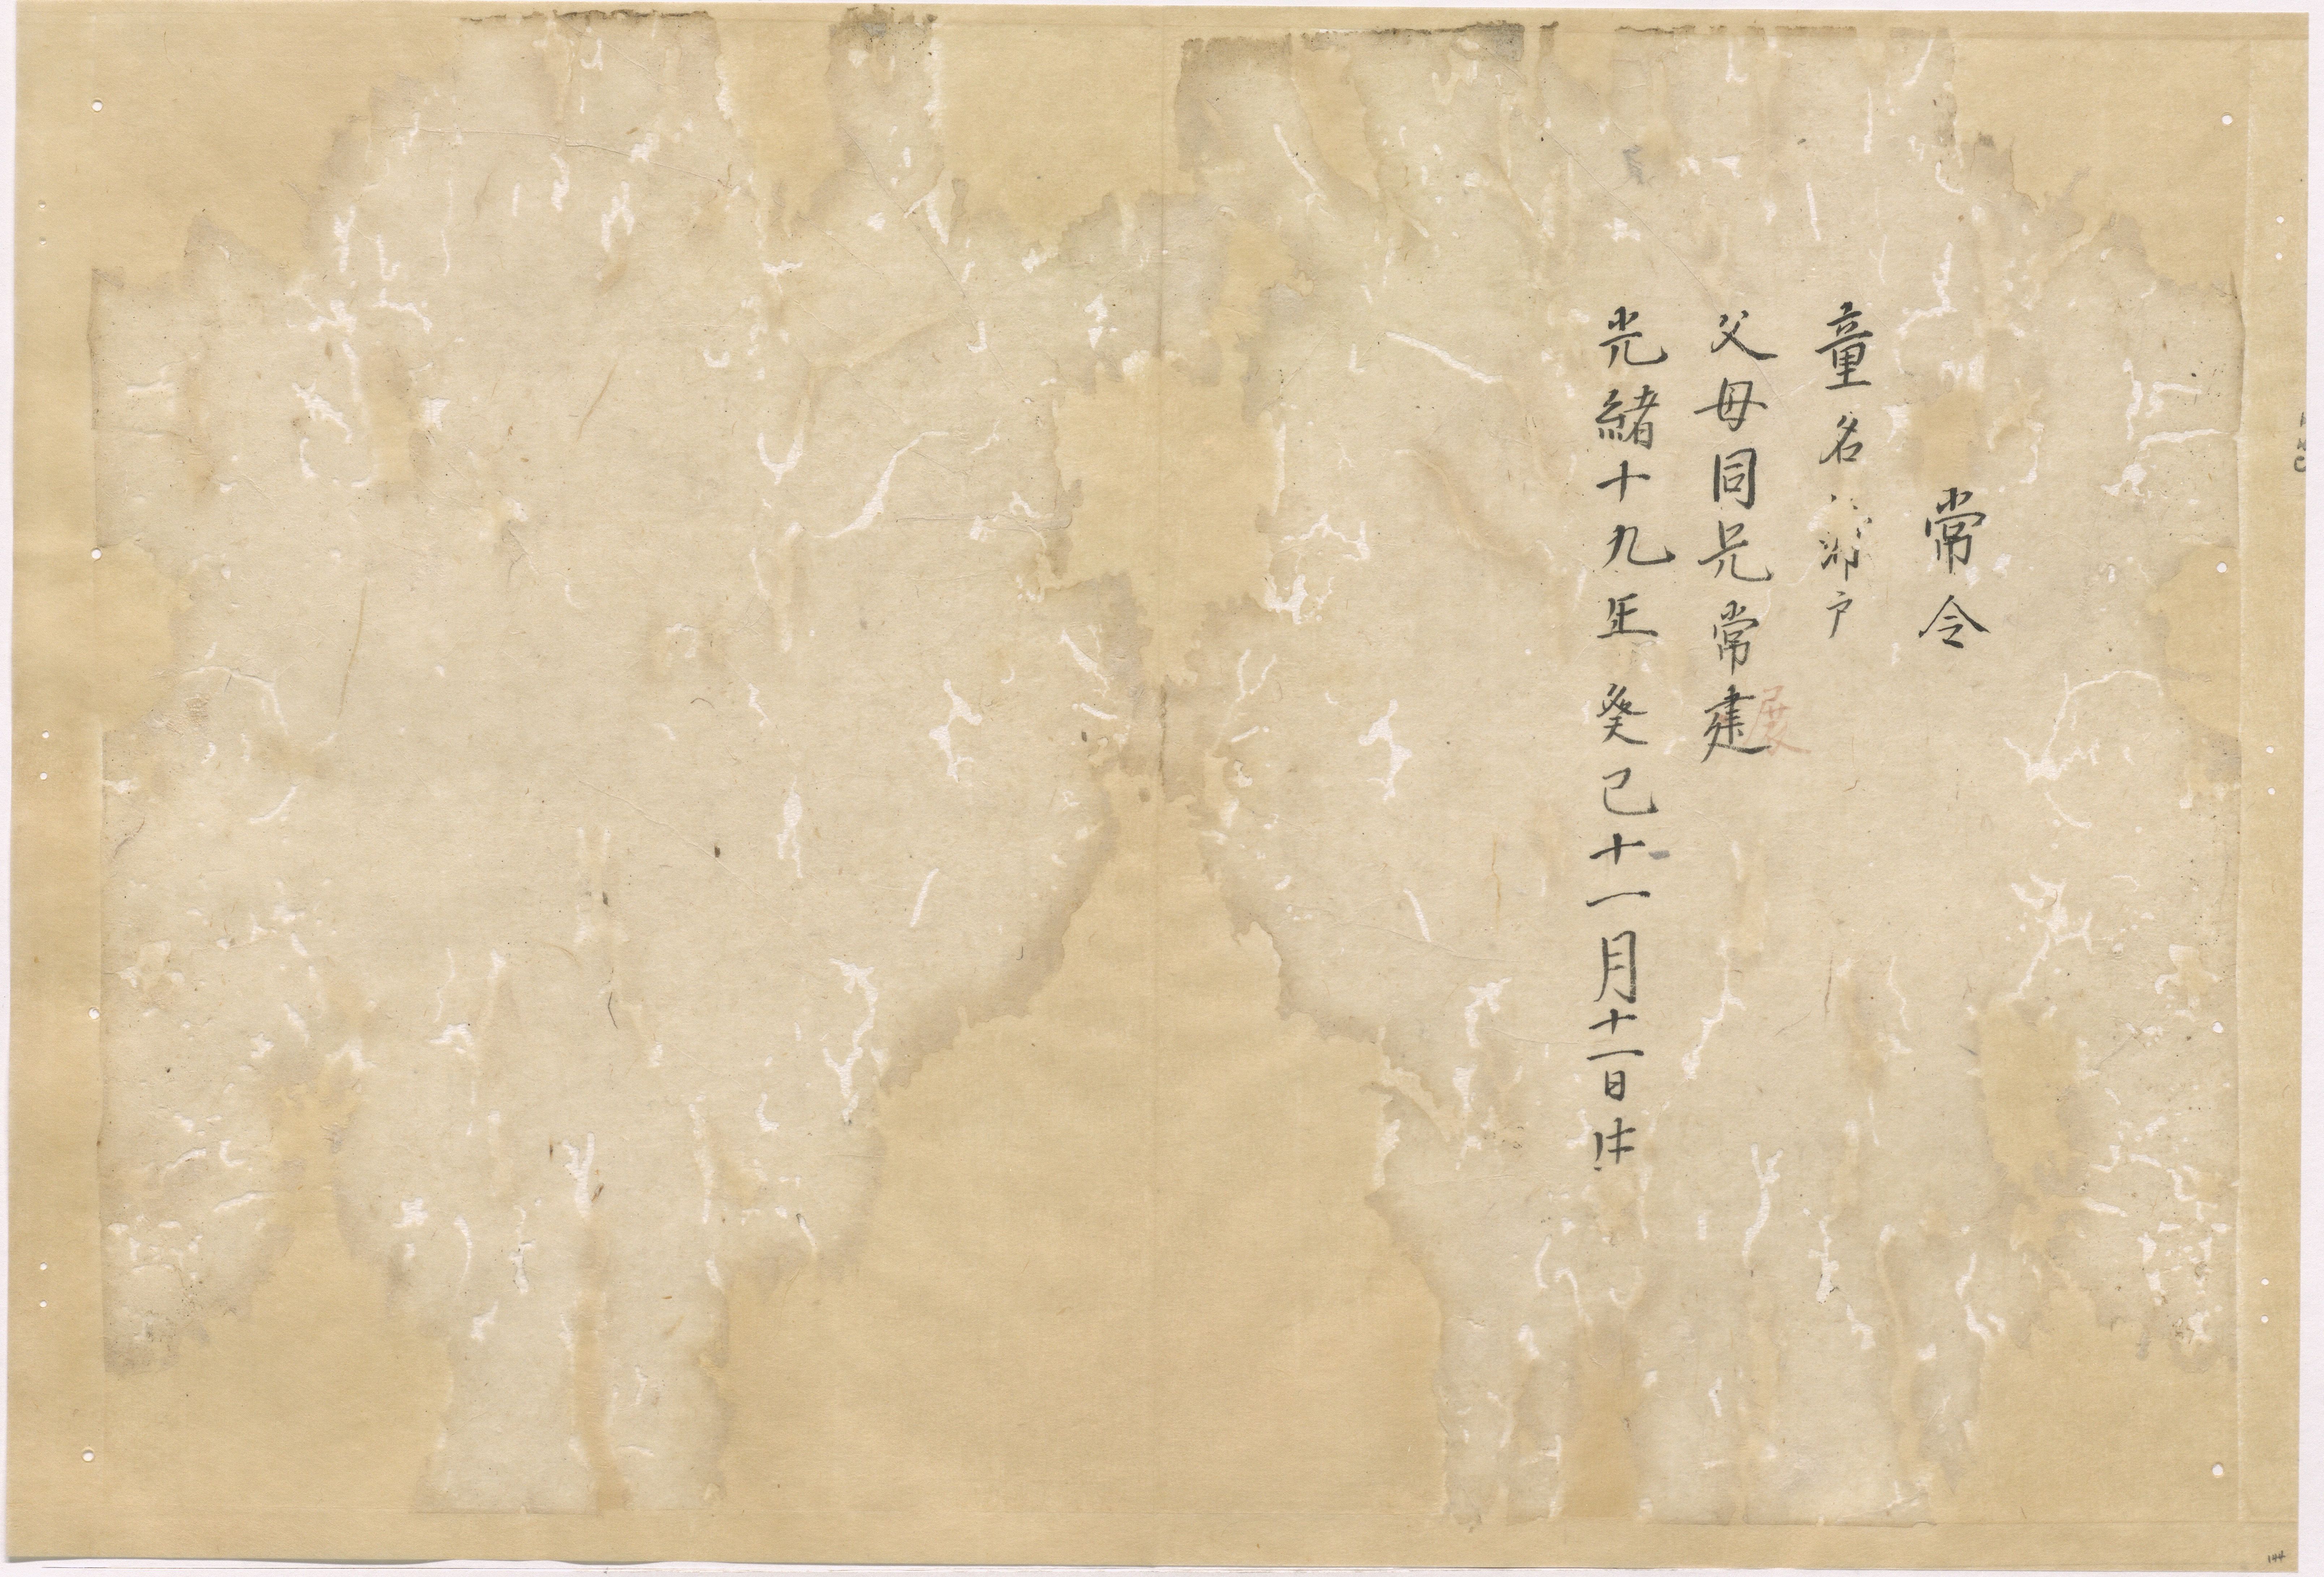 常令
童名
父母同兄常建
光緒十九年癸巳十一月十一日生
展
144